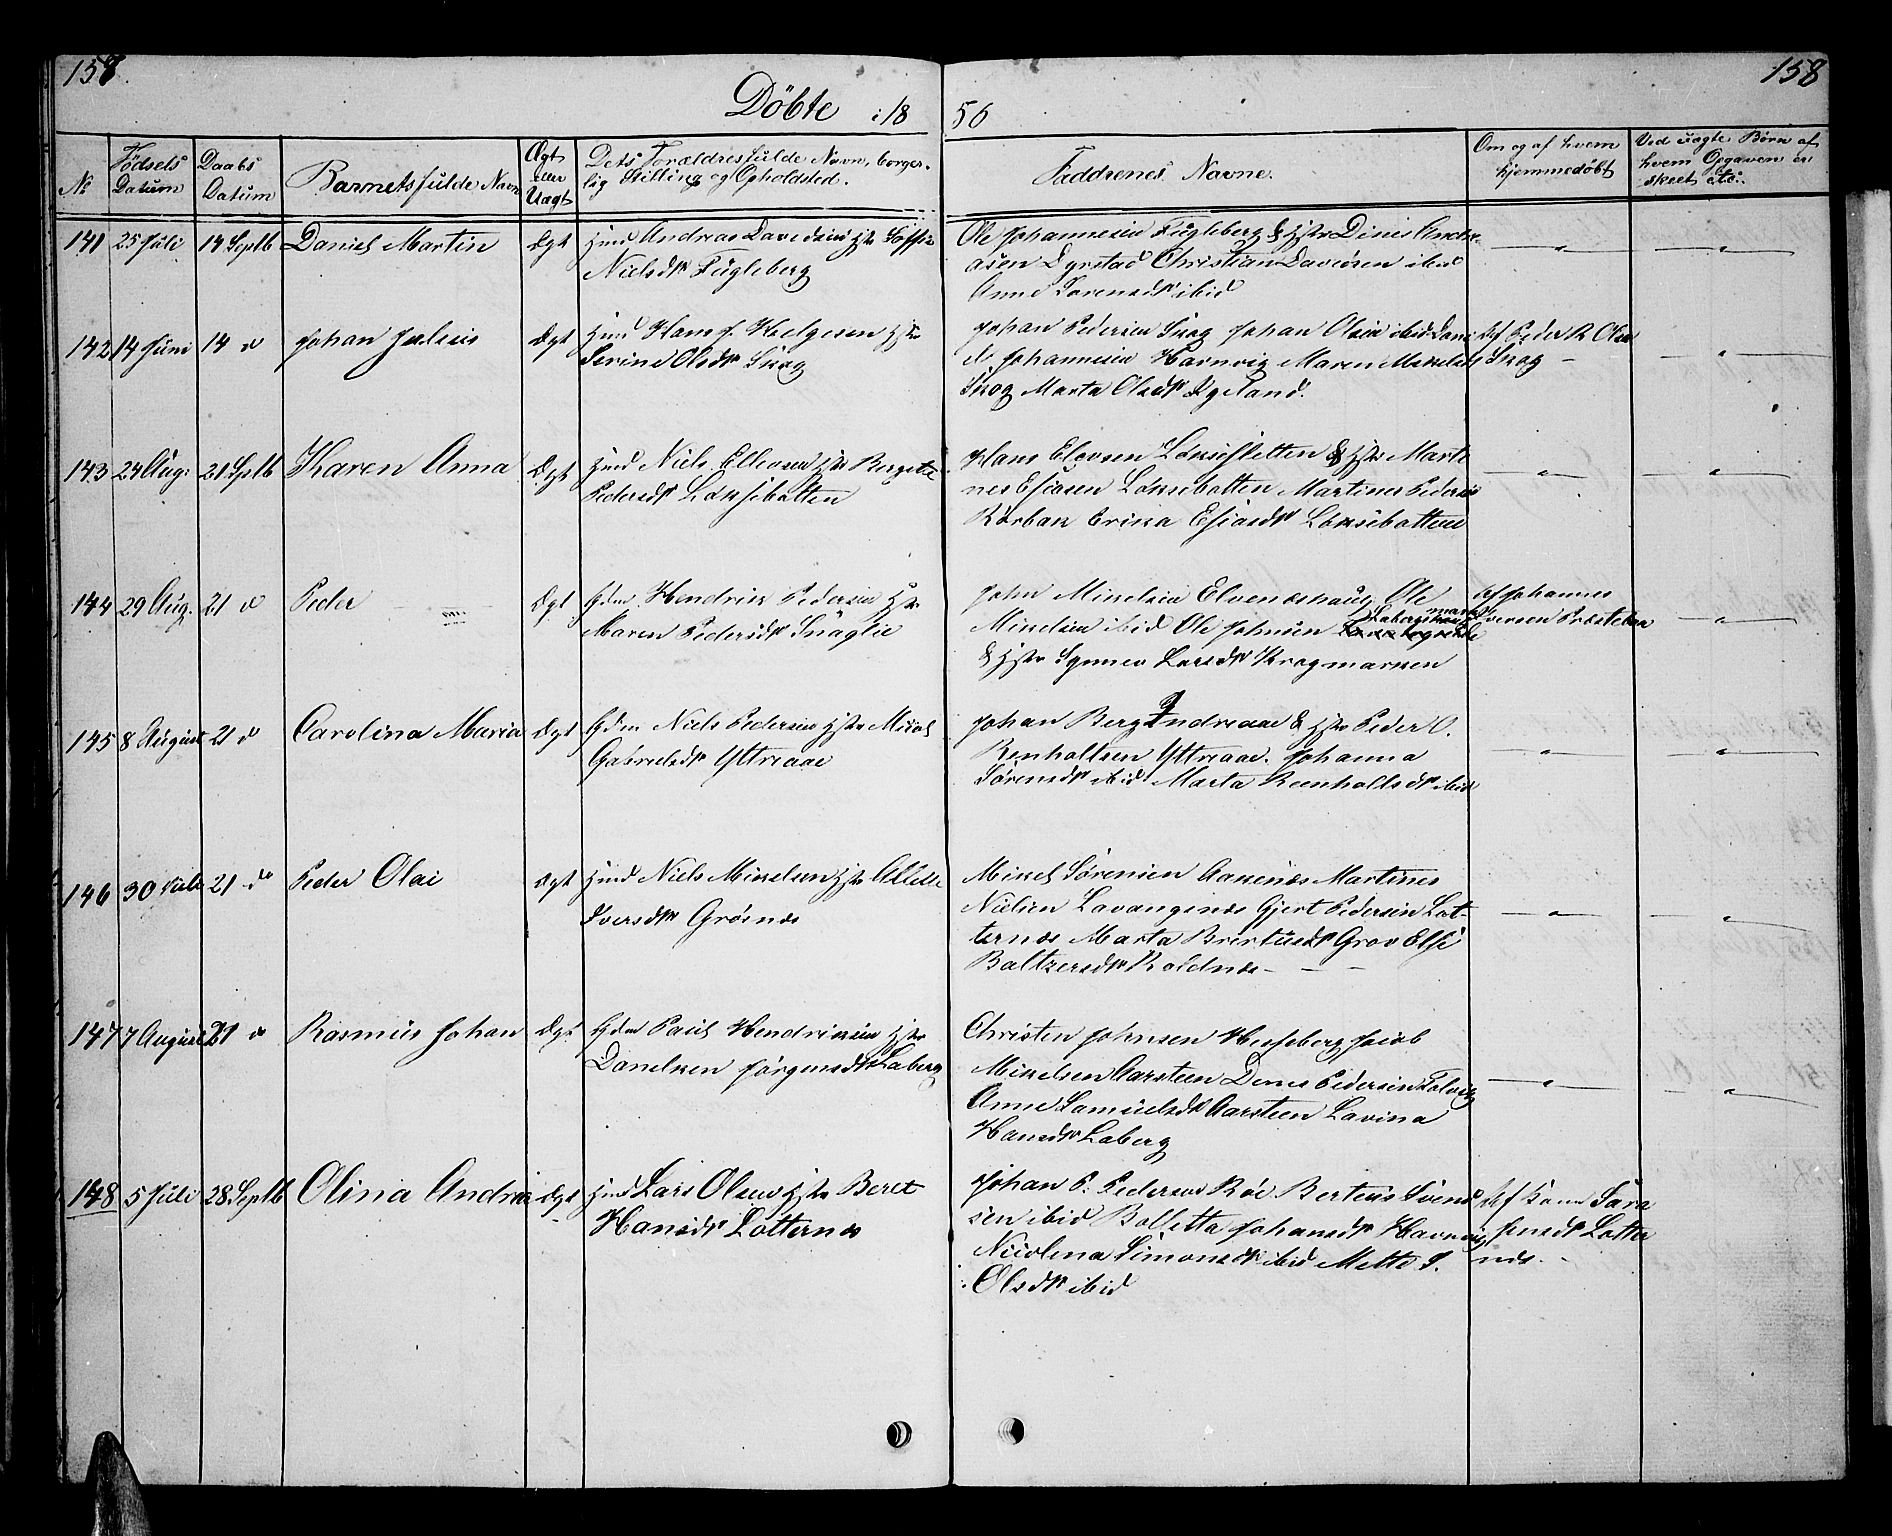 158.
158
Döbte i 18
56
No
Födsels Datum
Daabs Datum
Barnets fulde Navn
Ægt eller Uægt
Dets Forældres fulde Navn, borger-
lig Stilling og Opholdsted.
Faddrenes Navne.
Om og af hvem
hjemmedöbt
Ved uægte Börn af
hvem Opgaven er
skeet etc.
141 25 Juli 14 Septb Daniel Martin Ægt Hmd Andreas Davidsen Hst
Nielsdt Fugleberg
Ole Johannesen Fugleberg & Hst Dines Andre-
asen Dyrstad Christian Davidsen ibid
Anne Larensdt ibid
142 14 Juni 14 d Johan Julius Ægt Hmd Hans J. Helgesen Hst
Serine Olsdt Skog
Johan Pedersen Skog Johan Olsen ibid Dani
el Johannesen Havnvig Maren Mikelsdt
Skog Marta Olsdt Dyeland.
Af Peder R Olsen
Skog
143 24 Aug: 21 Septb Karen Anna Ægt Hmd Niels Ellevsen Hst Bergete
Pedersdt Lönsebotten
Hans Elevsen Lönsesletten & Hst Marti
nes Esiasen Lönsebotten Martines Pedersen
Rörbak Erika Esiasdt Lönsebotten
144 29 Aug. 21 d Peder Ægt Gdm Hendrik Pedersen Hst
Maren Pedersdt Snaglie
John Mikelsen Elveneshaug Ole
Mikelsen ibid Ole Johnsen
& Hst Synnev Larsdt Krogmarken
Af Johannes
Iversen Prestebak
145 8 August 21 d Carolina Maria Ægt Gdm Niels Pedersen Hst
Gabrielsdt Yttreaae
Johan Berg Indreaae & Hst Peder O.
Renholtsen Yttreaae. Johanna
Sörensdt ibid Marta Reenholdtsdt ibid
146 30 Juli 21 do Peder Olai Ægt Hmd Niels Mikelsen Hst
Iversdt Grösnes
Mikel Sörensen Aanenæs Martines
Nielsen Lavangsnes Gjert Pedersen Lot-
ternes Marta Bertusdt Grov Else
Baltzersdt Roldnæs
147 7 August 21 d Rasmus Johan Ægt Gdm Paul Hendriksen Hst
Danelken Jörgensdt Laberg
Christen Johnsen Hesseberg Jacob
Mikelsen Aarsteen Dines Pedersen Tolvig
Anne Samuelsdt Aarsteen Lavina
Hansdt Laberg
148 5 Juli 28 Septb Olina Andrea Ægt Hmd Lars Olsen Hst Beret
Hansdt Lotternes
Johan P. Pedersen Röe Berteus Svend
sen ibid Bolletta Johansdt Havnvig
Nicolina Simonsdt ibid Mette J.
Olsdt ibid
Af Kone Sara
Jensdt Lotter
nes.